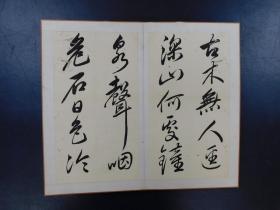 古木無人逕
深山何處鐘
泉聲咽
危石日色冷